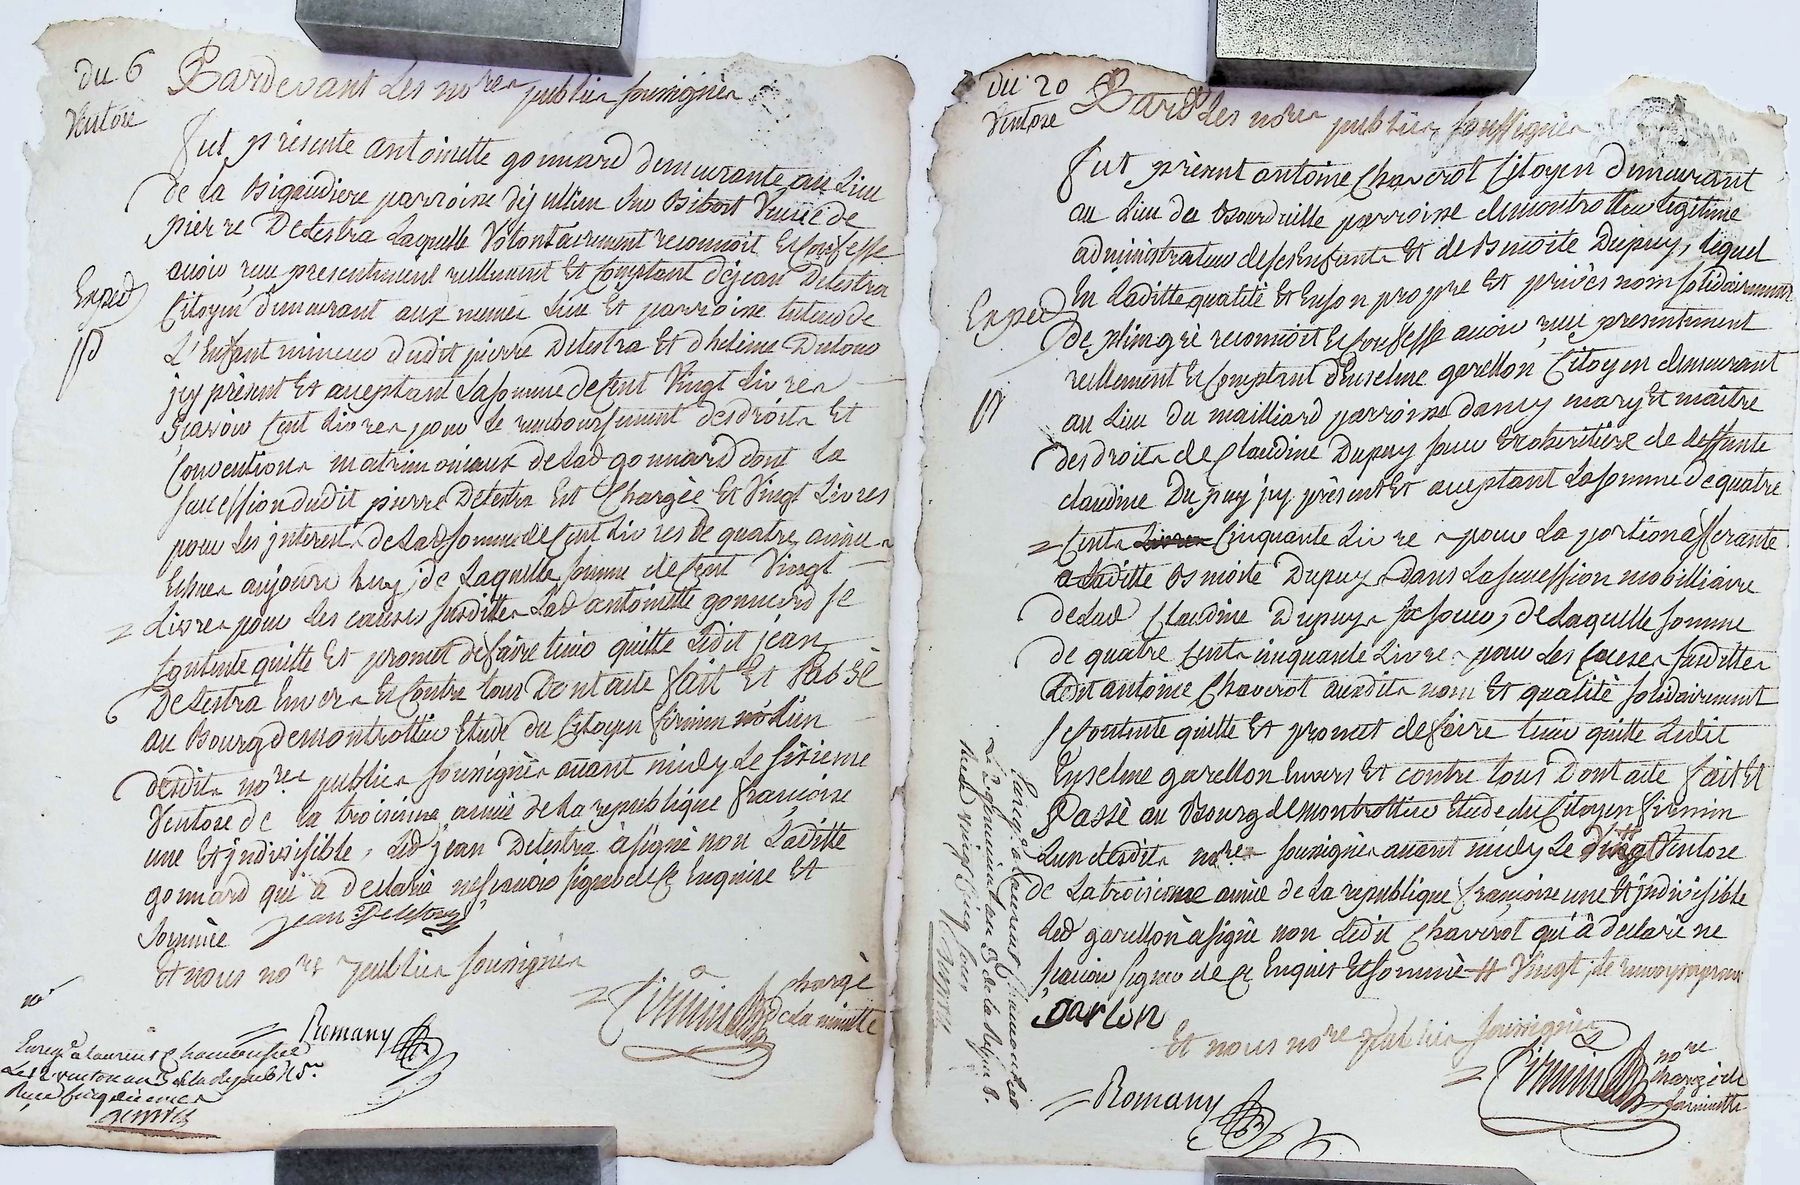 du 6
Ventose
Pardevant les nores publics soussignés
fut présente antoinette gonnard demeurante au lieu
de la Bigaudiere parroisse dejullien Veuve de
pierre Delestra laquelle Volontairement reconnoit et confesse
avoir reçu presentement reellement et comptant dejean Delestra
Citoyen demeurant aux memes lieu et parroisse tuteur de
Exped
L'Enfant mineur dudit pierre Delestra et dhelene
jcy présent et acceptant la somme de Cent Vingt livres
scavoir Cent livres pour le remboursement des droits et
Conventions matrimoniaux de lad gonnard dont la
succession dudit pierre Delestra est Chargée et Vingt livres
pour les jnterets de lad somme de Cent livres de quatre années
Echues aujourd huy, de laquelle somme de Cent Vingt
livres pour les causes susdittes lad antoinette gonnard se
Contente quitte et promet de faire tenir quitte ledit jean
Delestra Envers et Contre tous Dont acte fait et Passé
au Bourg demontrottier Etude du Citoyen firmin l'un
desdits nores publics soussignés avant midy le sixieme
Ventose de la troisieme année de la republique françoise
une et jndivisible, led jean Delestra à signé non laditte
gonnard qui a déclaré ne scavoir signer de ce Enquise et
sommée jean Delestra
et nous nores publics soussignés
Romany
firmin
chargé
de la minute
Enregé a laurent Chamousset
Reçu
du 20
Ventose
Pard les nores publics soussignés
fut présent antoine Chaverot Citoyen demeurant
au lieu de parroisse demontrottier legitime
administrateur de ses Enfants et de Benoite Dupuy, lequel
En laditte qualité et Enson propre et privés nom solidairement
Exped
de plingré reconnoit et confesse avoir reçu presentement
reellement et comptant d'Enselme garellon Citoyen demeurant
au lieu du mailliard parroisse dancy mary et maitre
des droits de Claudine Dupuy soeur et coheritiere de deffunte
claudine Dupuy jcy présent et acceptant la somme de quatre
Cents livres Cinquante livres pour la portion afferante
a laditte Benoite Dupuy dans la succession mobilliaire
de lad Claudine Dupuy sa soeur, de laquelle somme
de quatre Cents cinquante livres pour les Causes susdittes
ledit antoine Chaverot auxdits nom et qualité solidairement
se Contente quitte et promet de faire tenir quitte ledit
Enselme garellon Envers et contre tous Dont acte fait et
Passé au Bourg demontrottier Etude du Citoyen firmin
l'un desdits nores soussignés avant midy le Vingt Ventose
de la troisieme année de la republique françoise une et jndivisible
led garellon à signé non ledit Chaverot qui à déclaré ne
scavoir signer de ce Enquis et sommé # Vingt, le renvoy approuvé
garlon
Et nous nores publics soussignés
Romany
firmin
nore
chargé de
la minute
Enregé a laurent Chamousset
le 2 germinal an 3 de la Repu
Reçu vingt Cinq sous